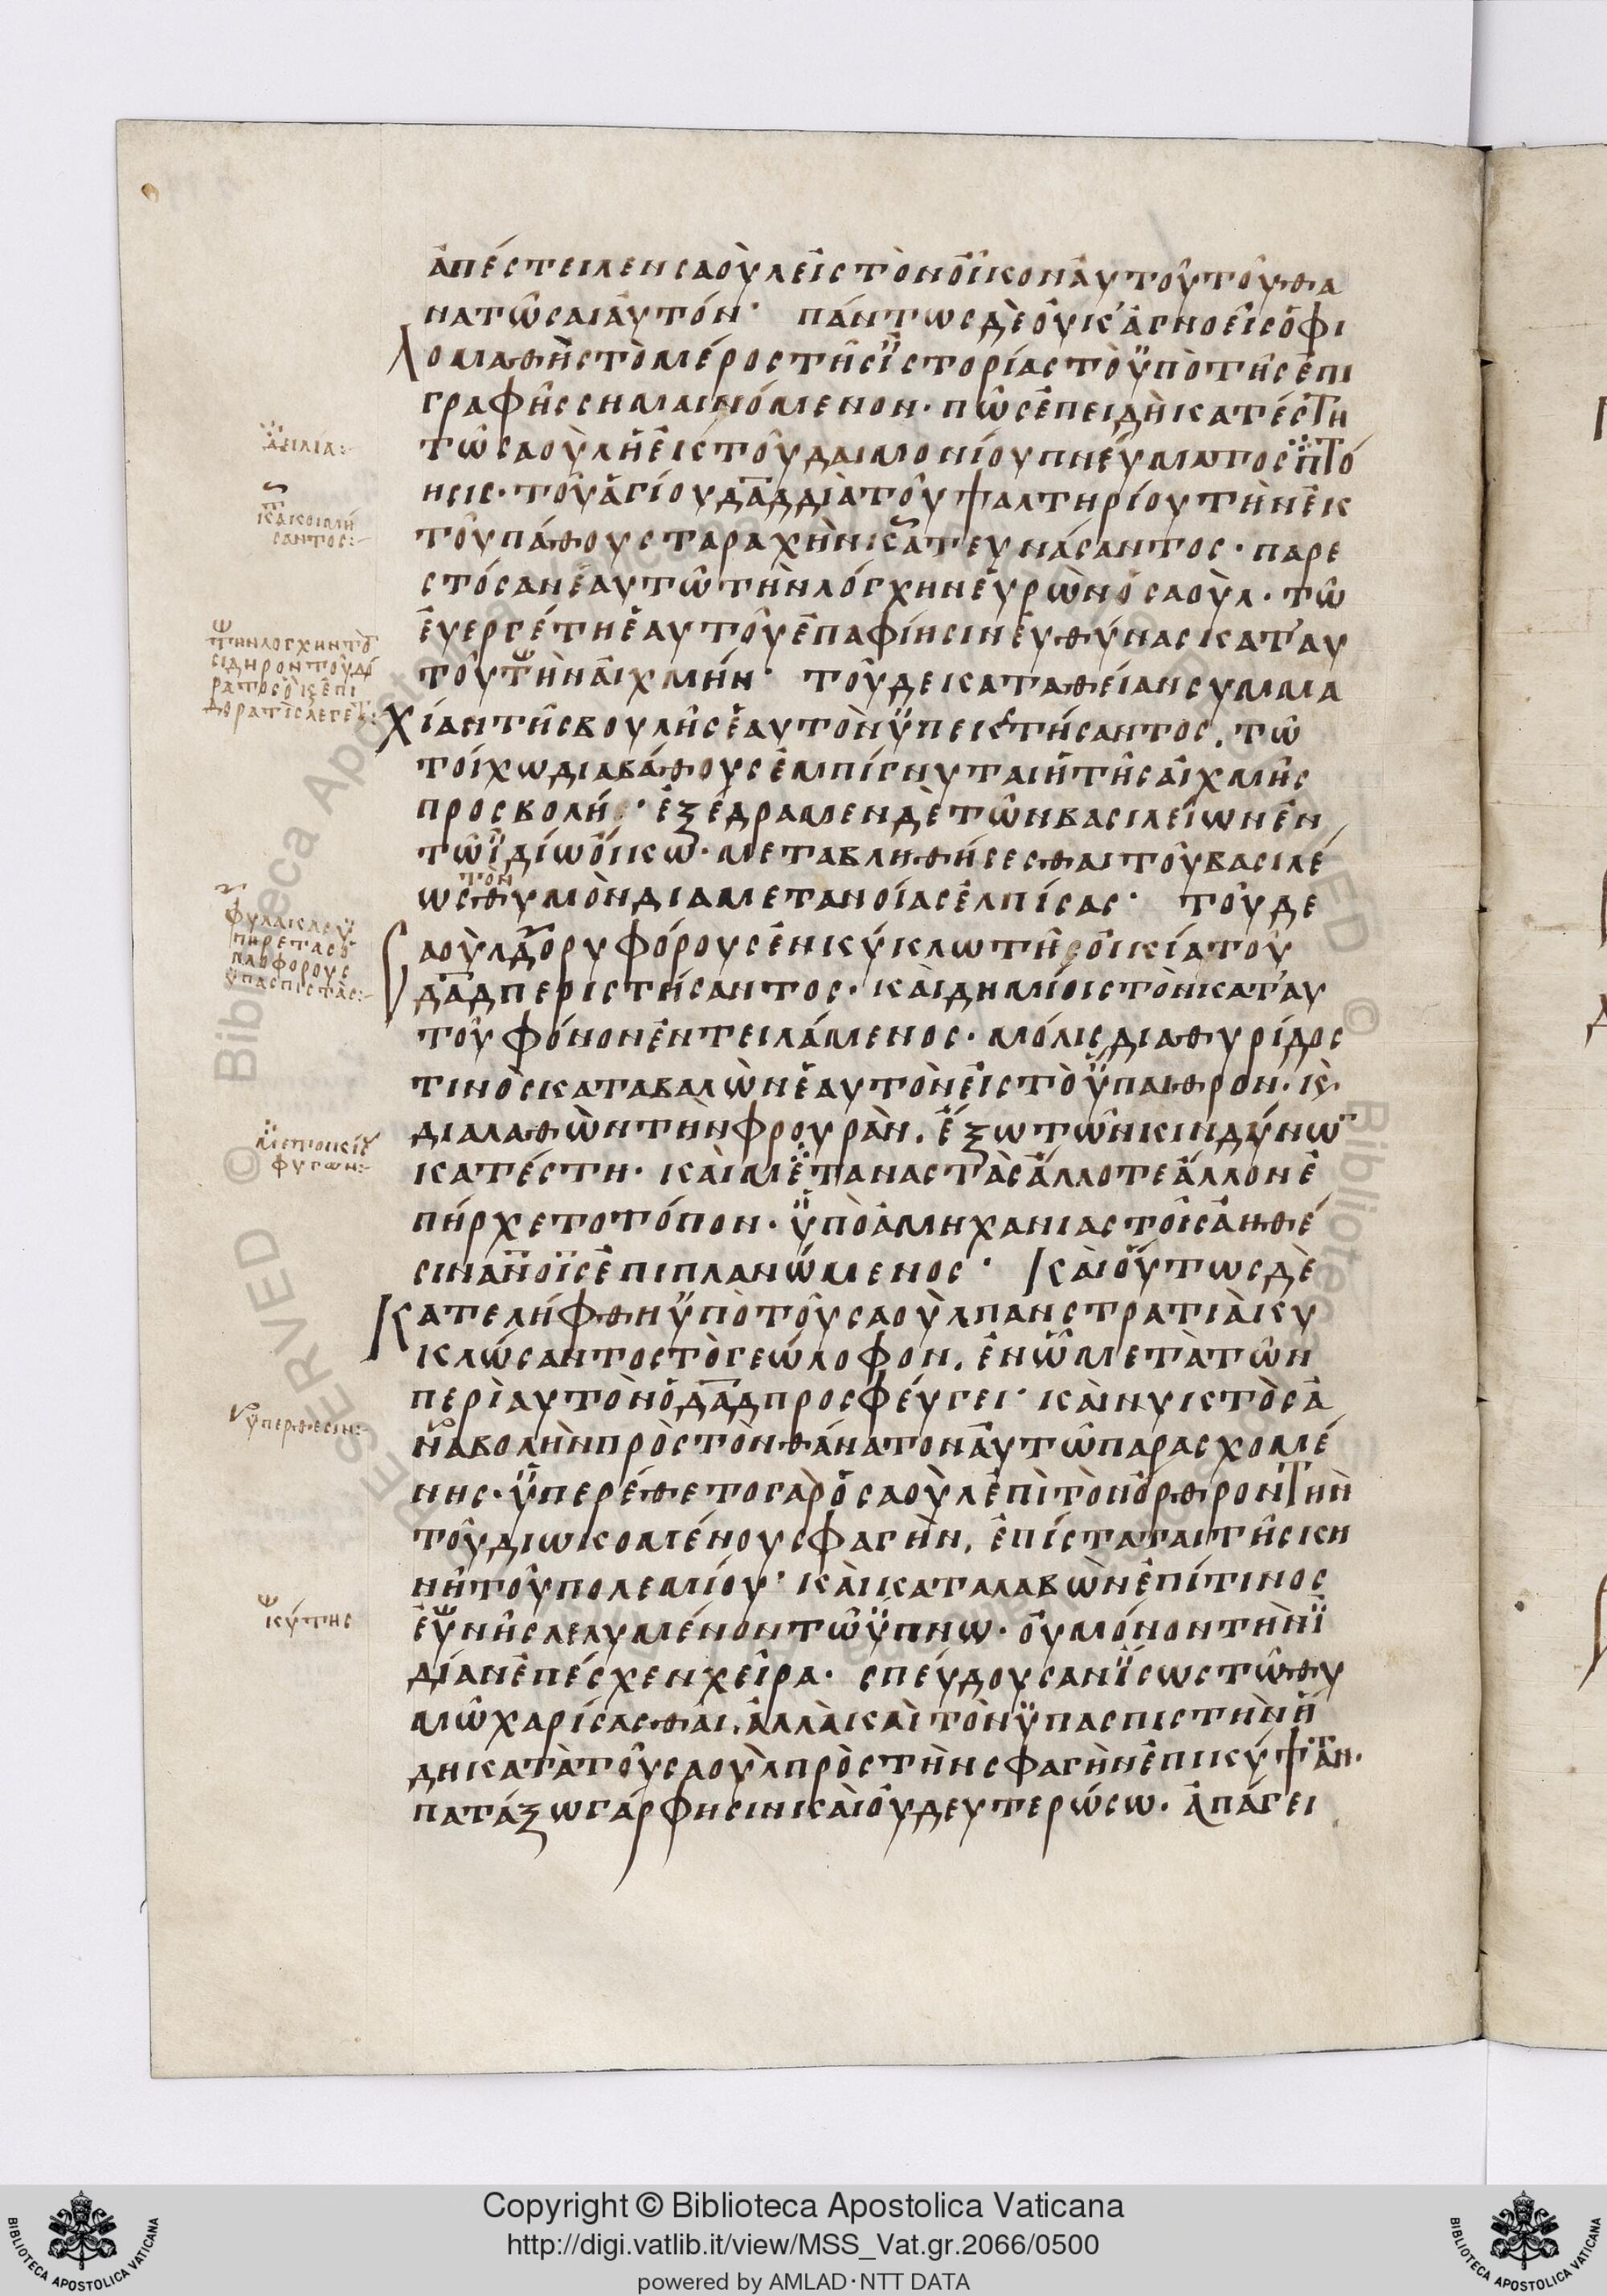 ἀπέστειλεν σαοὺλ εἰς τὸν οἶκον αὐτοῦ τοῦ θα
νατῶσαι αὐτόν· πάντως δὲ οὐκ' ἀγνοεῖς ὁ φι
λομαθὴς τὸ μέρος τῆς ἱστορίας τὸ ὑπὸ τῆς ἐπι
γραφῆς σημαινόμενον· πῶς ἐπειδὴ κατέστη
τῶ σαοὺλ ἡ ἐκ τοῦ δαιμονίου πνεύματος πτό
ησις· τοῦ ἁγίου δαδ διὰ τοῦ ψαλτηρίου τὴν ἐκ
τοῦ πάθους ταραχὴν κατευνάσαντος· παρε
στόσαν ἑαυτῶ τὴν λόγχην εὑρὼν ὁ σαοὺλ· τῶ
εὐεργέτη ἑαυτοῦ ἐπαφίησιν εὐθύνας κατ' αυ
τοῦ τὴν αἰχμήν· τοῦ δε κατα θείαν συμμα
χίαν τῆς βουλῆς ἑαυτὸν ὑπεκστήσαντος, τῶ
τοίχω δια βάθους ἐμπίγνυται ἡ τῆς αἰχμῆς
προσβολή· ἐξέδραμεν δὲ τῶν βασιλείων ἐν
τῶ ἰδίω οἴκω· μεταβληθήσεσθαι τοῦ βασιλέ
τὸν
ως θυμὸν δια μετανοίας ἐλπίσας· τοῦ δε
σαοὺλ δορυφόρους ἐν κύκλω τῆς οἰκία τοῦ
δαδ περιστήσαντος· καὶ δημίοις τὸν κατ' αυ
τοῦ φόνον ἐντειλάμενος· μόλις δια θυρίδος
τινὸς καταβαλὼν ἑαυτὸν εἰς τὸ ὕπαιθρον· κ(αὶ)
διαλαθὼν τὴν φρουρὰν, ἔξω τῶν κινδύνω(ν)
κατέστη· καὶ μεταναστὰς ἄλλοτε ἄλλον ἐ
πήρχετο τόπον· ὑπὸ ἀμηχανιας τοῖς ἀηθέ
σιν ἀνοῖς ἐπιπλανώμενος· καὶ οὕτως δὲ
κατελήφθη ὑπὸ τοῦ σαοὺλ πανστρατιὰι κυ
κλώσαντος τὸ γεώλοφον, ἐν ὧ μετὰ τῶν
περὶ αυτὸν ὁ δαδ προσφέυγει· καὶ νυκτὸς ἀ
ναβολὴν πρὸς τὸν θάνατον αὐτῶ παρασχομέ
νης· ὑπερέθετο γαρ ὁ σαοὺλ ἐπὶ τὸν ὄρθρον τὴν
τοῦ διωκομένου σφαγὴν, ἐπίσταται τῆ σκη
νῆ τοῦ πολεμίου· καὶ καταλαβὼν ἐπί τινος
ἐυνῆς λελυμένον τῶ ὕπνω· οὐ μόνον τὴν ἰ
δίαν ἐπέσχεν χεῖρα· σπέυδουσαν ἴσως τῶ θυ
μῶ χαρίσασθαι, ἀλλὰ καὶ τὸν ὑπασπιστὴν ἤ
δη κατὰ τοῦ σαοὺλ πρὸς τὴν σφαγὴν ἐπικύψαντ·
πατάξω γάρ φησιν καὶ οὐ δευτερώσω· ἀπάγει
δειλία:-
κατακοιμή
σαντος:-
τὴν λόγχην τὸ
σίδηρον τοῦ δό
ρατος ὁ κ(αὶ) ἐπι
δορατὶς λέγετ(αι):
φύλακας ὑ
πηρέτας ὁ
πλοφόρους
ὑπασπιστάς:-
μετοικισ
φυγων:-
ὑπέρθεσιν:-
κύτης
Copyright © Biblioteca Apostolica Vaticana
http://digi.vatlib.it/view/MSS_Vat.gr.2066/0500
powered by AMLAD·NTT DATA